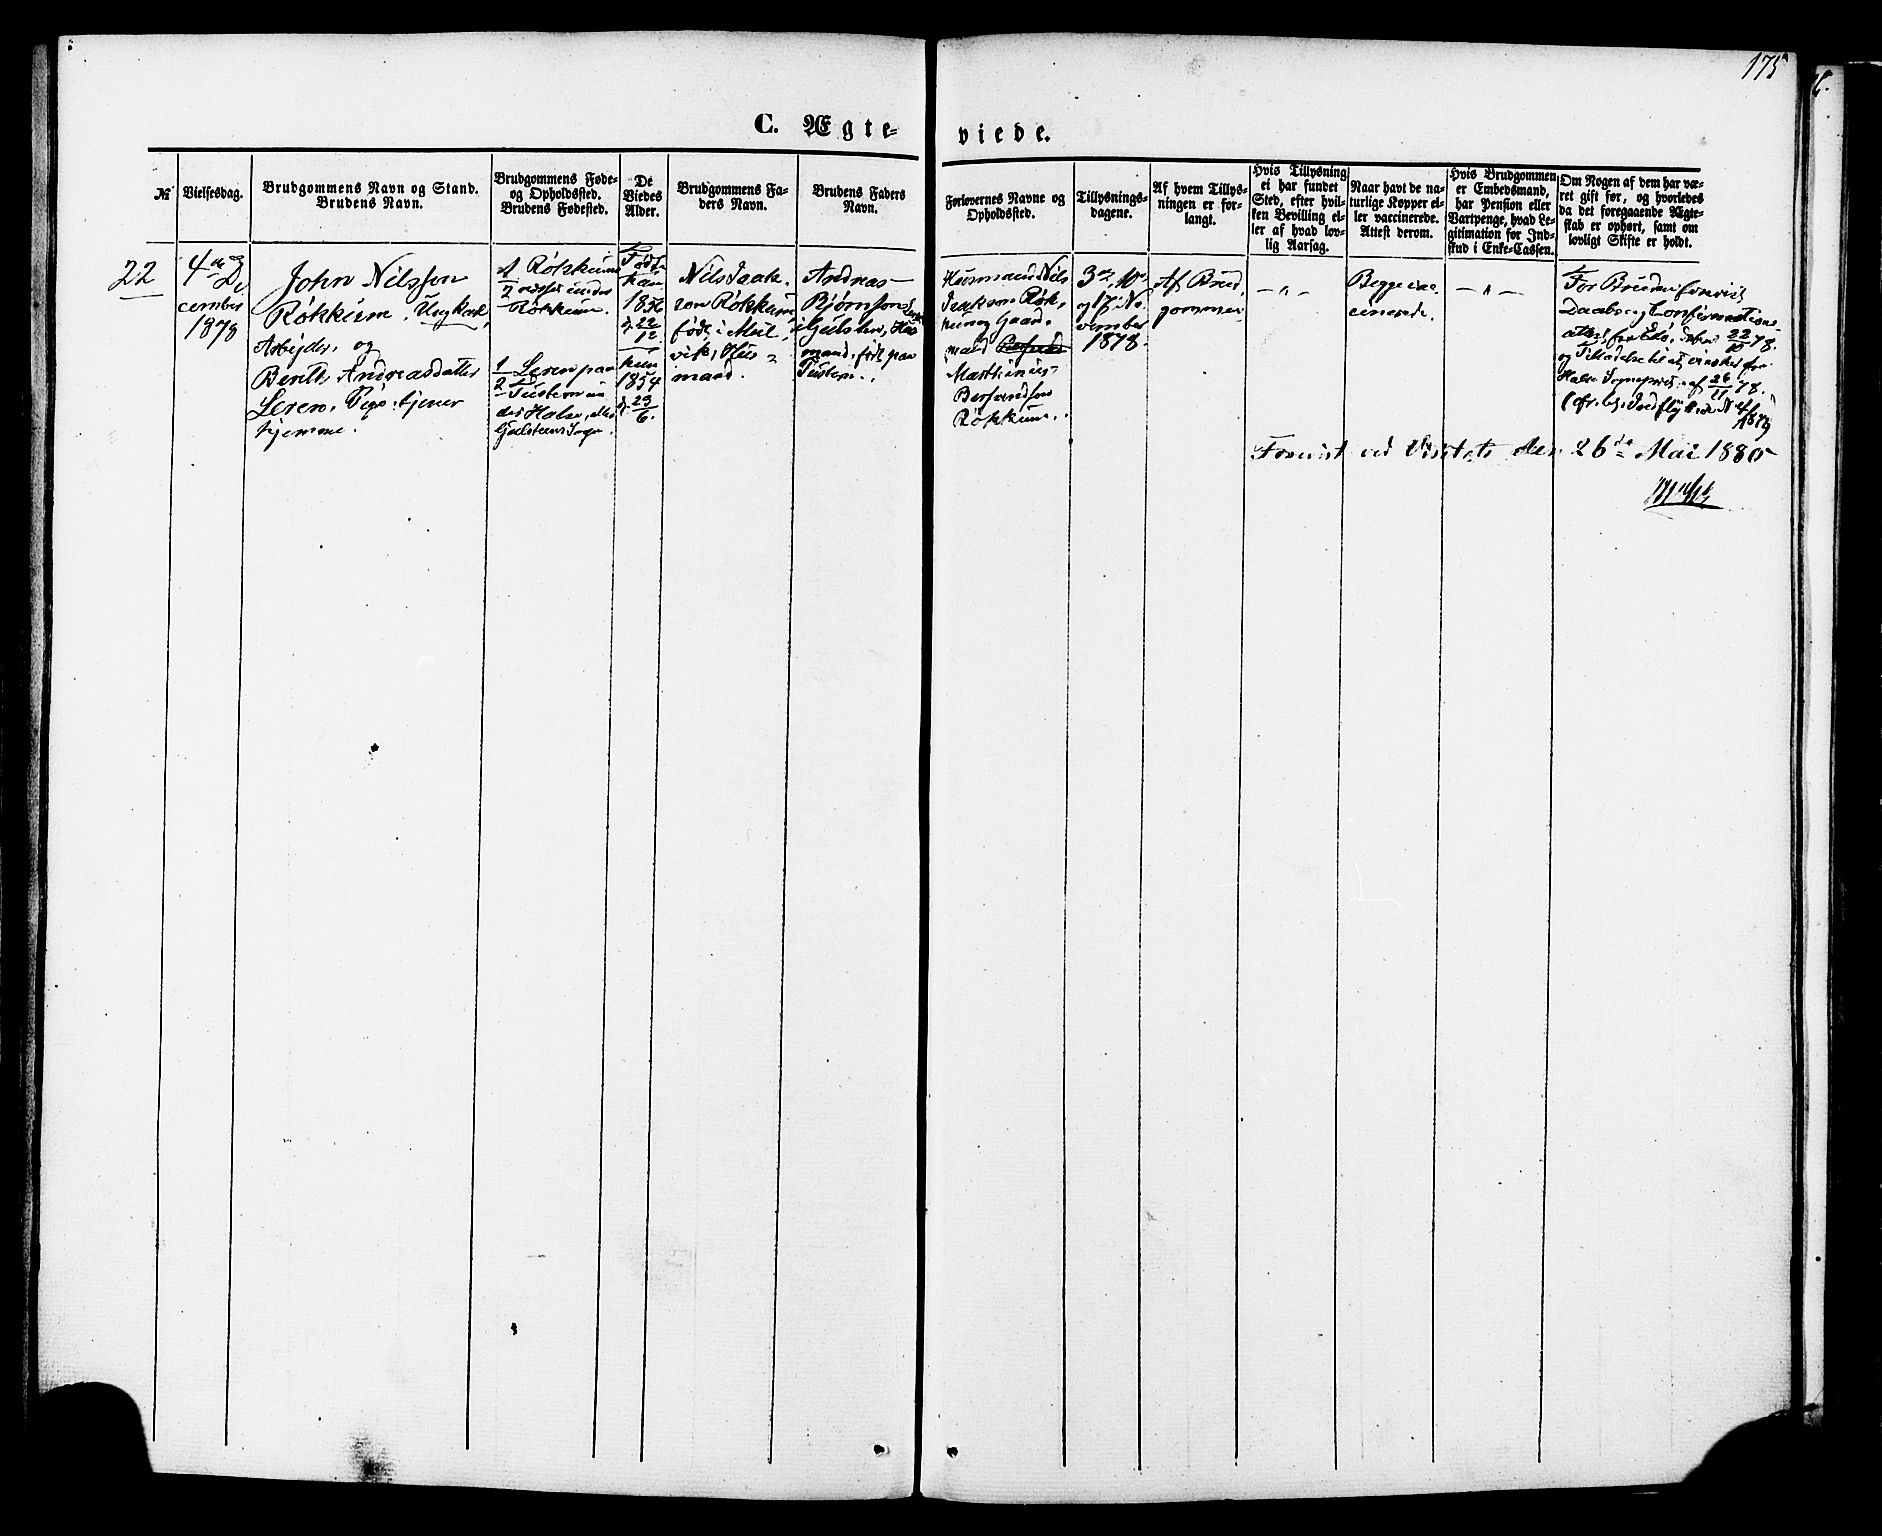 175
C. Ægte-
viede.
№
Vielsesdag.
Brudgommens Navn og Stand.
Brudens Navn.
Brudgommens Føde-
og Opholdssted.
Brudens Fødested.
De
Viedes
Alder.
Brudgommens Fa-
ders Navn.
Brudens Faders
Navn.
Forlovernes Navne og
Opholdssted.
Tillysnings-
dagene.
Af hvem Tillys-
ningen er for-
langt.
Hvis Tillysning
ei har fundet
Sted, efter hvil-
ken Bevilling el-
ler af hvad lov-
lig Aarsag.
Naar havt de na-
turlige Kopper el-
ler vaccinerede.
Attest derom.
Hvis Brudgommen
er Embedsmand,
har Pension eller
Vartpenge, hvad Le-
gitimation for Ind-
skud i Enke-Cassen.
Om Nogen af dem har væ-
ret gift før, og hvorledes
da det foregaaende Ægte-
skab er ophørt, samt om
lovligt Skifte er holdt.
22
4de De
cember
1878
John Nilsson
Røkkum, Ungkarl,
Arbejder, og
Berith Andreasdatter
Leren, Pige, tjener
hjemme.
1 Røkkum
2
Røkkum.
1 Leren paa
2 Tustern un
der Halse,
Sogn.
Født
han
1856
d. 22/12
hun
1854
d. 29/6.
Nils Isak-
son Røkkum,
født i Meil-
vik, Hus-
mand.
Andreas
Bjørnson
Gulsten, Hus
mand, født paa
Tustern.
Husmand Nils
Isakson Røk-
kum og Gaard-
mand
Marthinus
Røkkum.
3die, 10de
og 17de No-
vember
1878.
Af Brud-
gommen
— " —
Begge vac-
cinerede.
— " —
For Bruden forevist
Daabs og Confirmations-
attest fra Edø, 22/10 78.
og Tilladelse til at vies her fra
Halse Sognepræst af 26/11 78.
Forevist ved Visitats den 26de Mai 1880